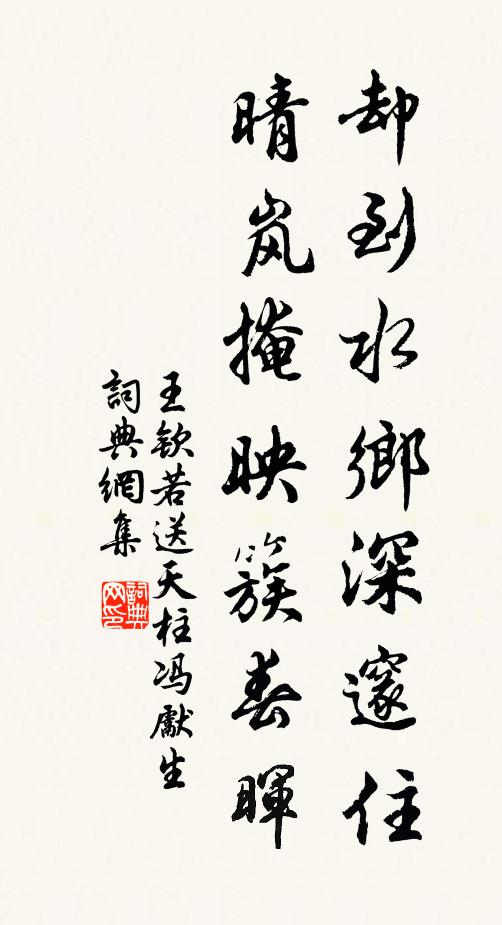 却到水鄉深邃住
晴岚掩映簇春暉
王欽若送天柱冯獻生
詞典網集
詞典網印